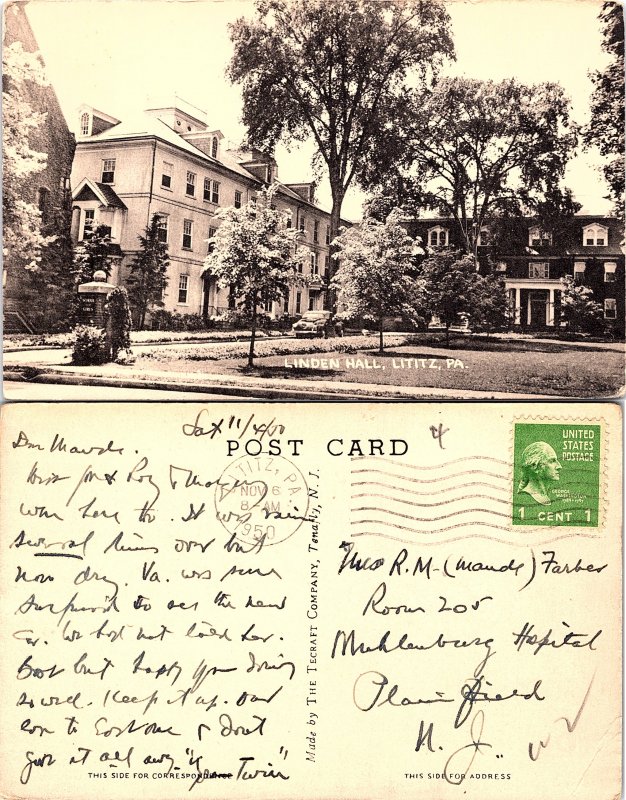 LINDEN HALL, LITITZ, PA.
Sat 11/4/50
POST CARD
4
LITITZ, PA.
NOV 6
8 AM
1950
UNITED
STATES
POSTAGE
GEORGE
WASHINGTON
1 CENT 1
Dear Maude.
Roy & Mother
were here too. It was
several times over but
now dry. Va. was sure
surprised to see the new
car. We had not told her.
Best but happy you doing
so well. Keep it up. Our
love to & don't
give it all away. "Twin"
Made by THE TECRAFT COMPANY, Tenafly, N. J.
Mrs R. M. (Maude) Farber
Room 205
Muhlenburg Hospital
Plainfield
N. J.
THIS SIDE FOR CORRESPONDENCE
THIS SIDE FOR ADDRESS